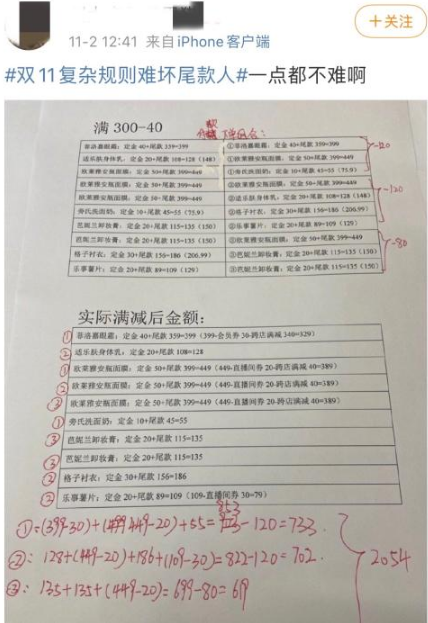 +关注
11-2 12:41 来自 iPhone 客户端
#双11复杂规则难坏尾款人#一点都不难啊
满 300-40
下单组合:
菲洛嘉眼霜：定金 40+尾款 359=399
①菲洛嘉眼霜：定金 40+尾款 359=399
-120
适乐肤身体乳：定金 20+尾款 108=128 (148)
①欧莱雅安瓶面膜：定金 50+尾款 399=449
欧莱雅安瓶面膜：定金 50+尾款 399=449
①旁氏洗面奶：定金 10+尾款 45=55 (75.9)
欧莱雅安瓶面膜：定金 50+尾款 399=449
②欧莱雅安瓶面膜：定金 50+尾款 399=449
欧莱雅安瓶面膜：定金 50+尾款 399=449
②适乐肤身体乳：定金 20+尾款 108=128 (148)
-120
旁氏洗面奶：定金 10+尾款 45=55 (75.9)
②格子衬衣：定金 30+尾款 156=186 (206.99)
芭妮兰卸妆膏：定金 20+尾款 115=135 (150)
②乐事薯片：定金 20+尾款 89=109 (129)
芭妮兰卸妆膏：定金 20+尾款 115=135 (150)
③欧莱雅安瓶面膜：定金 50+尾款 399=449
-80
格子衬衣：定金 30+尾款 156=186 (206.99)
③芭妮兰卸妆膏：定金 20+尾款 115=135 (150)
乐事薯片：定金 20+尾款 89=109 (129)
③芭妮兰卸妆膏：定金 20+尾款 115=135 (150)
实际满减后金额：
① 菲洛嘉眼霜：定金 40+尾款 359=399 (399-会员券 30-跨店满减 40=329)
② 适乐肤身体乳：定金 20+尾款 108=128
① 欧莱雅安瓶面膜：定金 50+尾款 399=449 (449-直播间券 20-跨店满减 40=389)
② 欧莱雅安瓶面膜：定金 50+尾款 399=449 (449-直播间券 20-跨店满减 40=389)
③ 欧莱雅安瓶面膜：定金 50+尾款 399=449 (449-直播间券 20-跨店满减 40=389)
① 旁氏洗面奶：定金 10+尾款 45=55
③ 芭妮兰卸妆膏：定金 20+尾款 115=135
③ 芭妮兰卸妆膏：定金 20+尾款 115=135
② 格子衬衣：定金 30+尾款 156=186
② 乐事薯片：定金 20+尾款 89=109 (109-直播间券 30=79)
①=(399-30)+(449-20)+55=853-120=733
②: 128+(449-20)+186+(109-30)=822-120=702
2054
③: 135+135+(449-20)=699-80=619